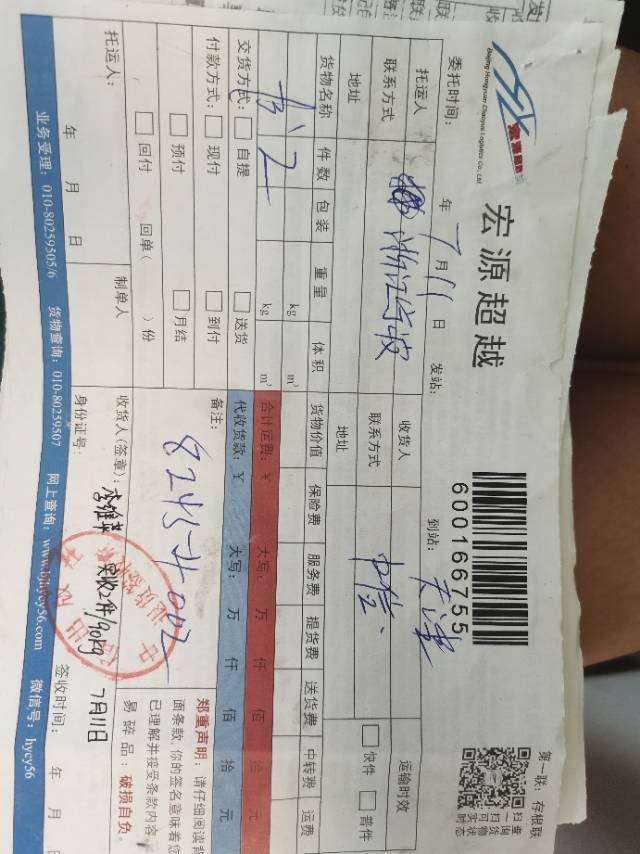 宏源超越
Beijing Hongyuan Chaoyue Logistics Co., Ltd
600166755
第一联：存根联
委托时间： 年 7月11日 发站： 到站：天津
托运人 收货人 中信 运输时效
联系方式 联系方式 快件 普件
地址 地址
货物名称 件数 包装 重量 体积 货物价值 保险费 服务费 提货费 送货费 中转费 运费
书 2 kg m³
kg m³
合计运费：￥ 大写： 万 仟 佰 拾 元
交货方式： 自提 送货 代收货款：￥ 大写： 万 仟 佰 拾 元
付款方式： 现付 到付 备注：
预付 月结 8245-4002
回付 回单( )份
郑重声明：请仔细阅读背
面条款，你的签名意味着您
已理解并接受条款内容。
易碎品：破损自负。
托运人： 制单人 收货人(签章)：李维苹 实收2件/90kg 7月11日
年 月 日 身份证号： 签收时间： 年 月
业务受理：010-80259505/6 货物查询：010-80259507 网上查询：www.bjhycy56.com 微信号：hycy56